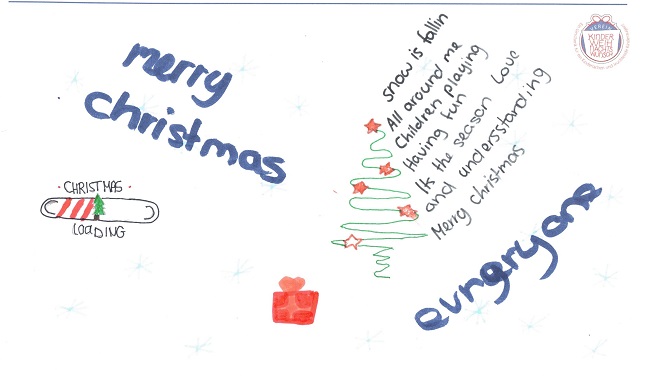 merry
christmas
CHRISTMAS
LOADING
snow is fallin
All around me
Children playing
Having fun
It's the season Love
and undersstanding
Merry christmas
evngryone
VEREIN
KINDER
WEIH
NACHTS
WUNSCH